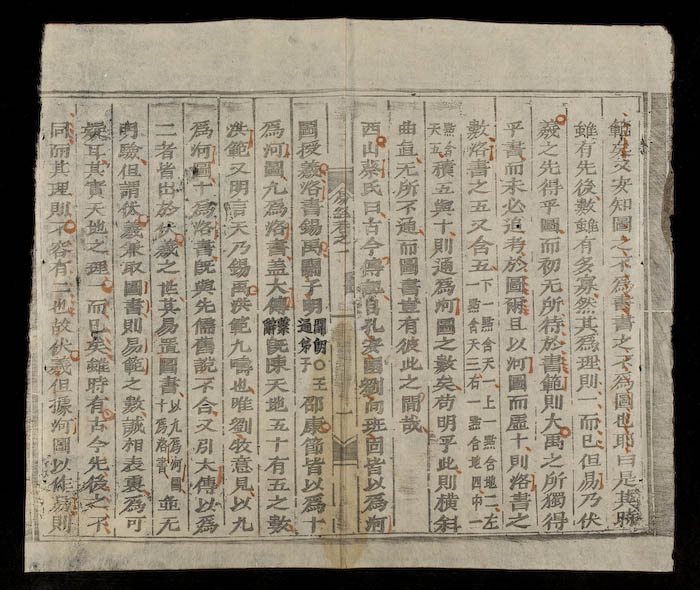 範矣又安知圖之不爲書書之不爲圖也耶曰是其時
雖有先後數雖有多寡然其爲理則一而已但易乃伏
羲之先得乎圖而初无所待於書範則大禹之所獨得
乎書而未必追考於圖爾且以河圖而虛十則洛書之
數洛書之五又合五下一點含天一上一點含地二左一點含天三右一點含地四中一
點含天五積五與十則通爲河圖之數矣苟明乎此則橫斜
曲直无所不通而圖書豈有彼此之間哉
西山蔡氏曰古今傳記自孔安國劉向班固皆以爲河
卷之一
一
圖授羲洛書錫禹關子明關朗○王通弟子邵康節皆以爲十
爲河圖九爲洛書蓋大傳繫辭旣陳天地五十有五之數
洪範又明言天乃錫禹洪範九疇也唯劉牧意見以九
爲河圖十爲洛書旣與先儒舊說不合又引大傳以爲
二者皆出於伏羲之世其易置圖書以九爲河圖十爲洛書並无
明驗但謂伏羲兼取圖書則易範之數誠相表裏爲可
疑耳其實天地之理一而已矣雖時有古今先後之不
同而其理則不容有二也故伏羲但據河圖以作易則